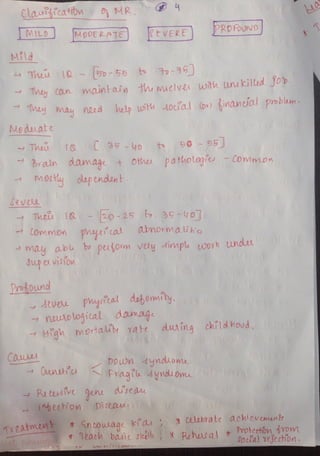 Classification of MR. 4
MILD MODERATE SEVERE PROFOUND
Mild
→ Their IQ - [50-55 to 70-75]
→ They can maintain themselves with unskilled job.
→ They may need help with social (or) financial problem.
Moderate
→ Their IQ [ 35-40 to 50-55]
→ Brain damage + other pathologies - common
→ mostly dependent
Severe
→ Their IQ - [20-25 to 35-40]
→ common physical abnormalities
→ may able to perform very simple work under
supervision
Profound
→ severe physical deformity.
→ neurological damage
→ High mortality rate during childhood.
Causes
→ Genetics < Down syndrome
Fragile syndrome
→ Recessive gene disease
→ Infection Disease.
Treatment * Encourage kids ; * celebrate achievements
* Teach basic skill ; * Refusal * Protection from
social rejection.